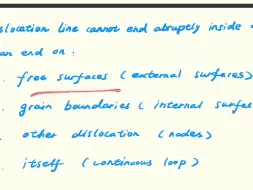 slocation line cannot end abruptly inside
an end on :
free surfaces ( external surfaces)
grain boundaries ( internal surfac
other dislocation (nodes)
itself (continuous loop)